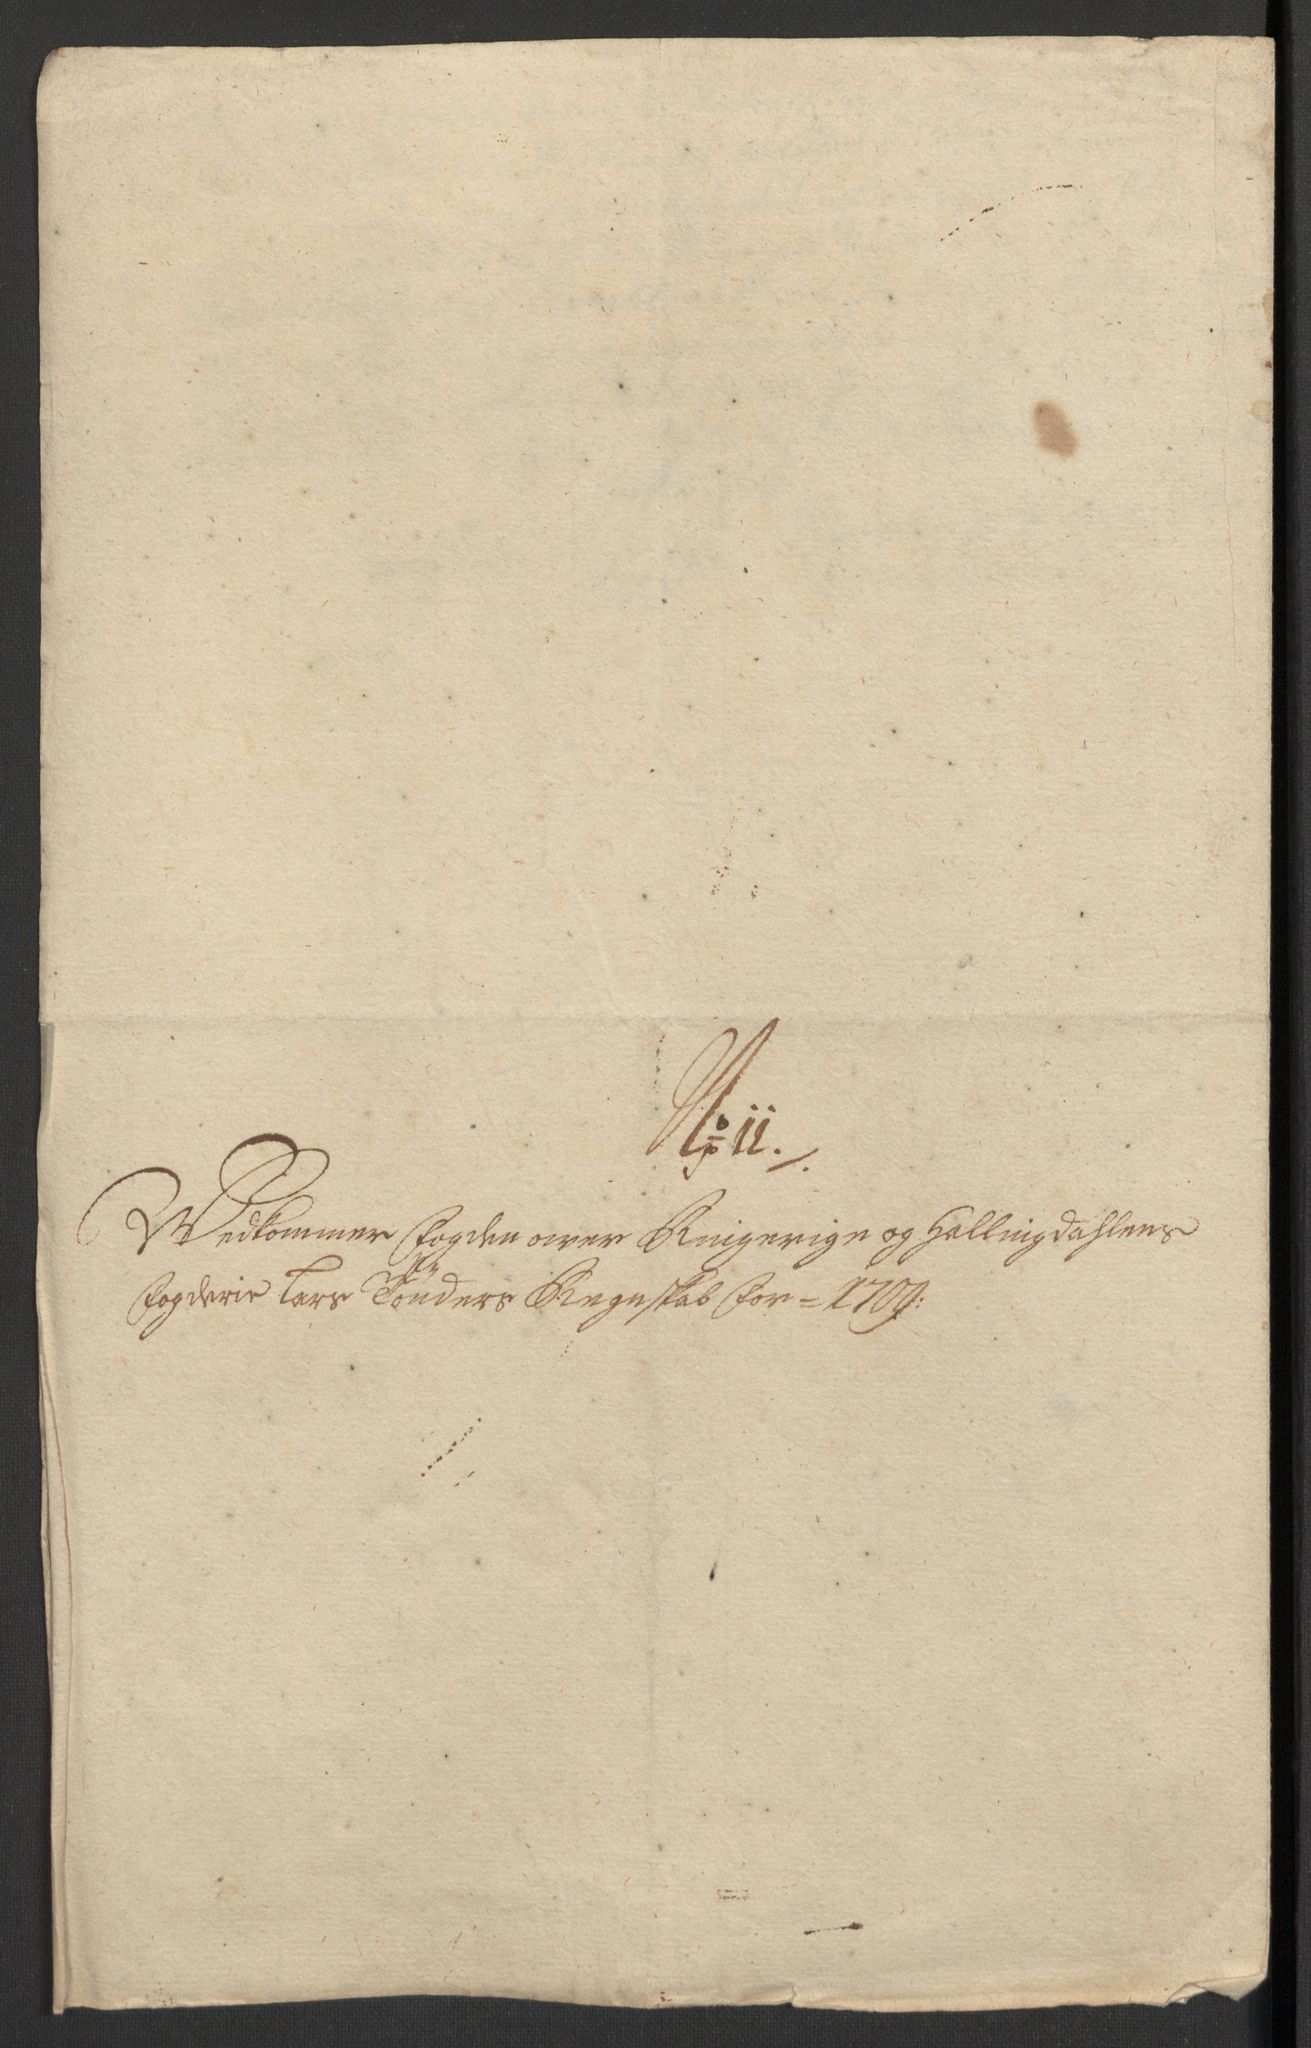 No: 11.
Wedkommer Fogden over Ringerige og Hallingdahlens
Fogderie Lars Tønders Regnskab for = 1709: